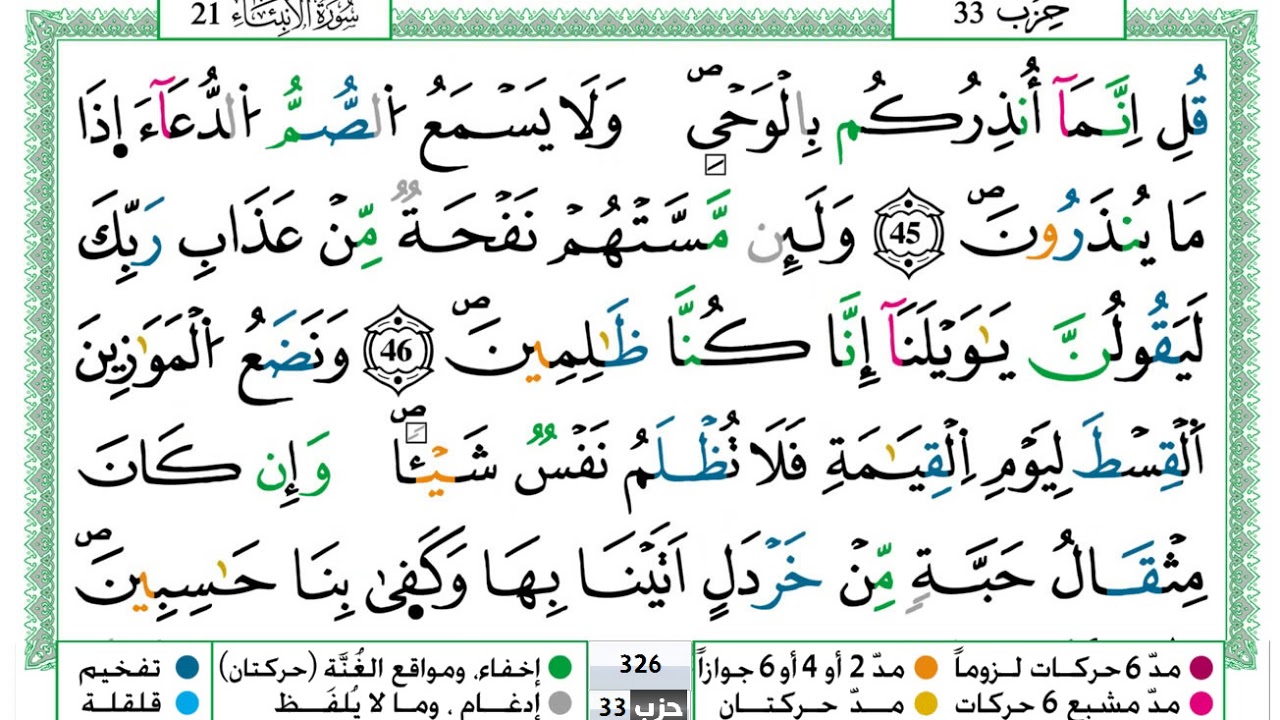 سُورَةُ الْأَنبِيَاءِ 21
حِزْب 33
قُلِ اِنَّمَآ أُنذِرُكُم بِالْوَحْيِ ۖ وَلَا يَسْمَعُ اُ۬لصُّمُّ اُ۬لدُّعَآءَ اِ۪ذَا
مَا يُنذَرُونَ ۖ 45 وَلَئِن مَّسَّتْهُمْ نَفْحَةٌ مِّنْ عَذَابِ رَبِّكَ
لَيَقُولُنَّ يَٰوَيْلَنَآ إِنَّا كُنَّا ظَٰلِمِينَ ۖ 46 وَنَضَعُ اُ۬لْمَوَٰزِينَ
اَ۬لْقِسْطَ لِيَوْمِ اِ۬لْقِيَٰمَةِ فَلَا تُظْلَمُ نَفْسٌ شَيْـٔاً ۖ وَإِن كَانَ
مِثْقَالُ حَبَّةٍ مِّنْ خَرْدَلٍ اَتَيْنَا بِهَا وَكَف۪ىٰ بِنَا حَٰسِبِينَ ۖ
مدّ 6 حركات لـزوماً
مدّ 2 أو 4 أو 6 جوازاً
326
إخفاء، ومواقع الغُنَّة (حركتان)
تفخيم
مدّ مشبع 6 حركات
مـدّ حركتـان
حزب 33
إدغام ، وما لا يُلفَـظ
قلقلة